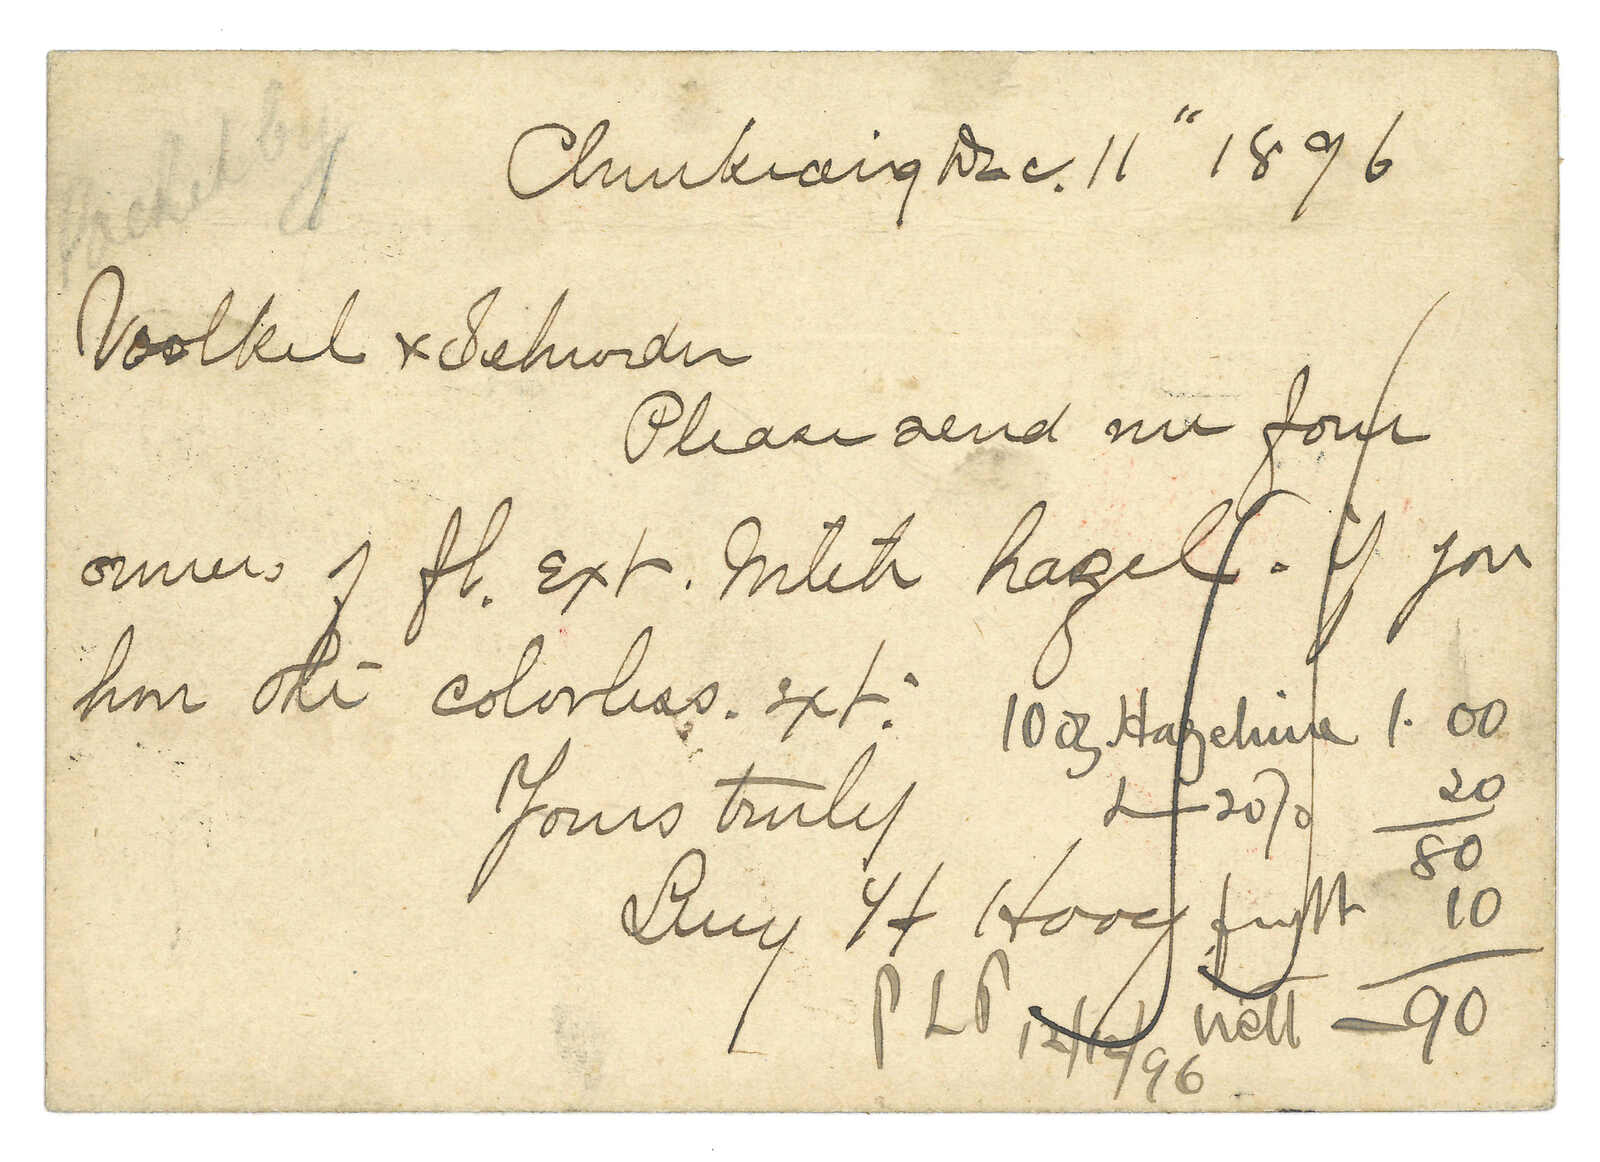 Packed by
Dec. 11" 1896
Voelkel &
Please send me four
ounces of fl. Ext. Witch hazel. if you
have the colorless. ext.
10 oz. Hazeline 1.00
Yours truly
L-20% 20
80
H Hoog frght 10
PLP nett - 90
12/12/96